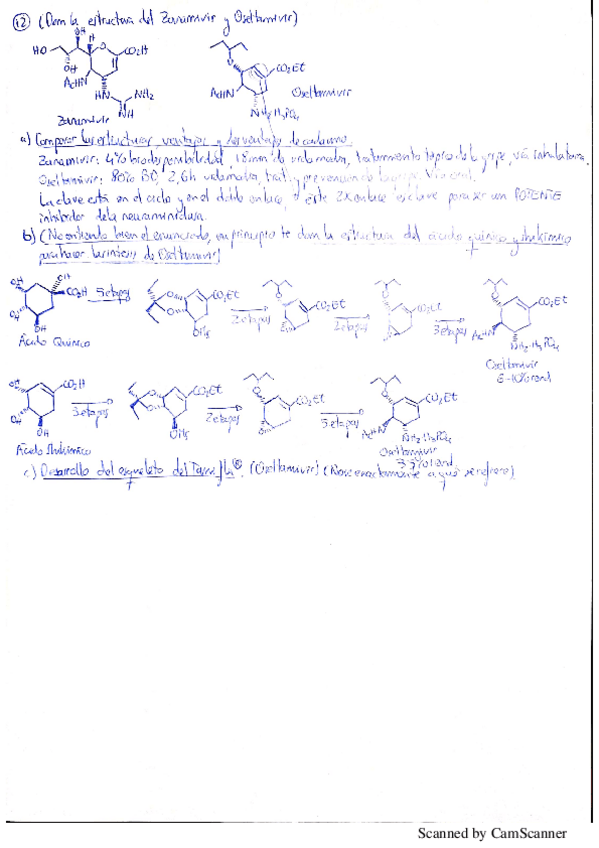 12 (Dan la estructura del Zanamivir y Oseltamivir)
OH
H
HO
O
CO2H
OH
AcHN
HN
NH2
NH
Zanamivir
O
CO2Et
AcHN
NH2·H3PO4
Oseltamivir
a) Comparar las estructuras, ventajas y desventajas de cada uno
Zanamivir: 4% biodisponibilidad, vida media, tratamiento de la gripe, vía inhalatoria.
Oseltamivir: 80% BD, 2,6h vida media, trat. y prevención de la gripe, vía oral.
La clave está en el ciclo y en el doble enlace, este enlace es clave para ser un POTENTE
inhibidor de la neuraminidasa.
b) (No entiendo bien el enunciado, en principio te dan la estructura del ácido quínico y shikímico
para hacer la síntesis de Oseltamivir)
OH
OH
OH
OH
CO2H
5 etapas
Ácido Quínico
O
O
CO2Et
OMs
2 etapas
O
CO2Et
O
2 etapas
O
CO2Et
3 etapas
O
CO2Et
AcHN
NH2·H3PO4
Oseltamivir
OH
OH
OH
CO2H
3 etapas
Ácido Shikímico
O
O
CO2Et
OMs
2 etapas
O
CO2Et
O
5 etapas
O
CO2Et
AcHN
NH2·H3PO4
Oseltamivir
c) Desarrollo del esqueleto del Tamiflu® (Oseltamivir) (No se exactamente a qué se refiere)
Scanned by CamScanner